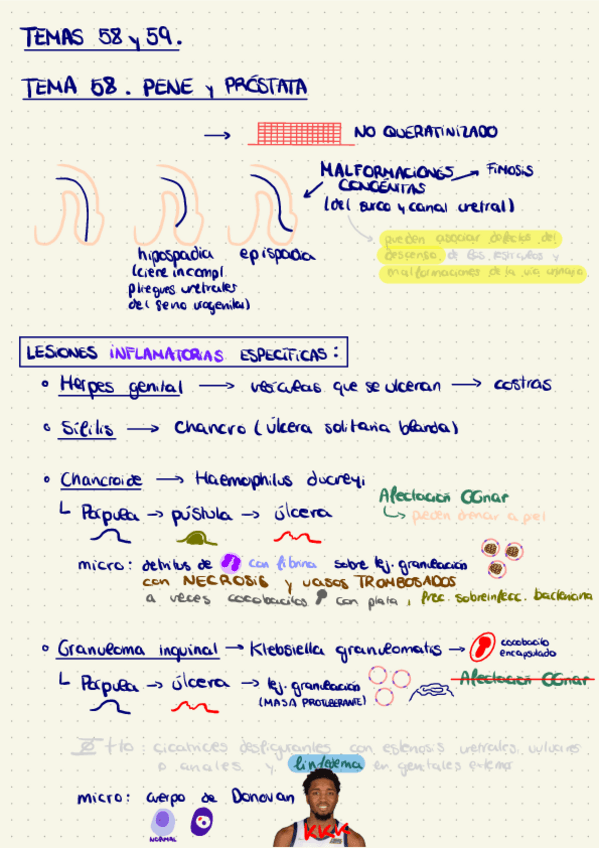 TEMAS 58 y 59.
TEMA 58. PENE y PRÓSTATA
→ NO QUERATINIZADO
MALFORMACIONES → FIMOSIS
CONGÉNITAS
(del surco y canal uretral)
pueden asociar defectos del
descenso de los testículos y
malformaciones de la vía urinaria.
hipospadia epispadia
(cierre incompl.
pliegues uretrales
del seno urogenital)
LESIONES INFLAMATORIAS ESPECÍFICAS:
• Herpes genital → vesículas que se ulceran → costras
• Sífilis → Chancro (úlcera solitaria blanda)
• Chancroide → Haemophilus ducreyi
Afectación GGnar
↳ pueden drenar a piel
└ Pápula → pústula → úlcera
micro: detritus de con fibrina sobre tej. granulación
con NECROSIS y vasos TROMBOSADOS
a veces cocobacilos con plata, frec. sobreinfecc. bacteriana
• Granuloma inguinal → Klebsiella granulomatis → cocobacilo
encapsulado
└ Pápula → úlcera → tej. granulación
(MASA PROTUBERANTE)
Afectación GGnar
tto: cicatrices desfigurantes con estenosis uretrales, vulvares
o anales y linfedema en genitales externo
micro: cuerpo de Donovan
NORMAL
KKK